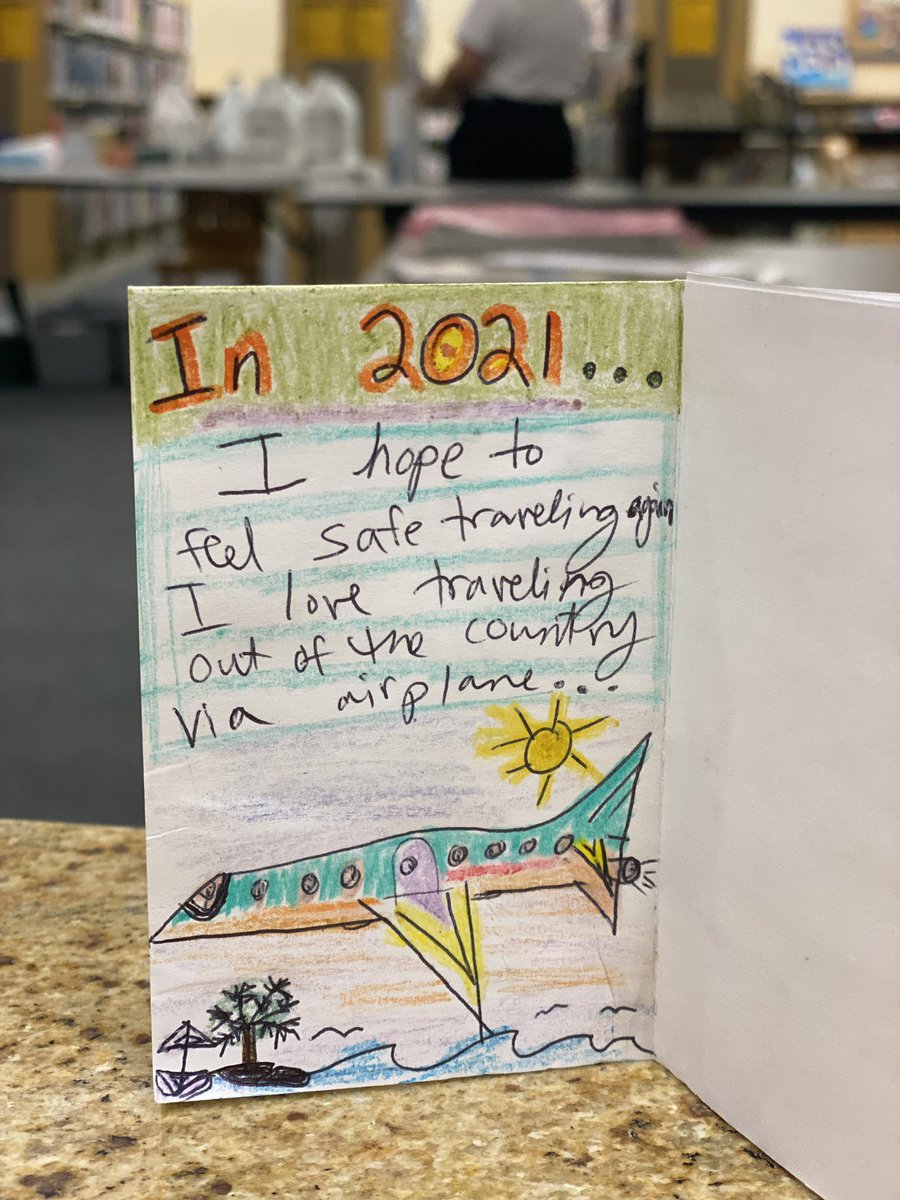 In 2021...
I hope to
feel safe traveling again
I love traveling
out of the country
via airplane...